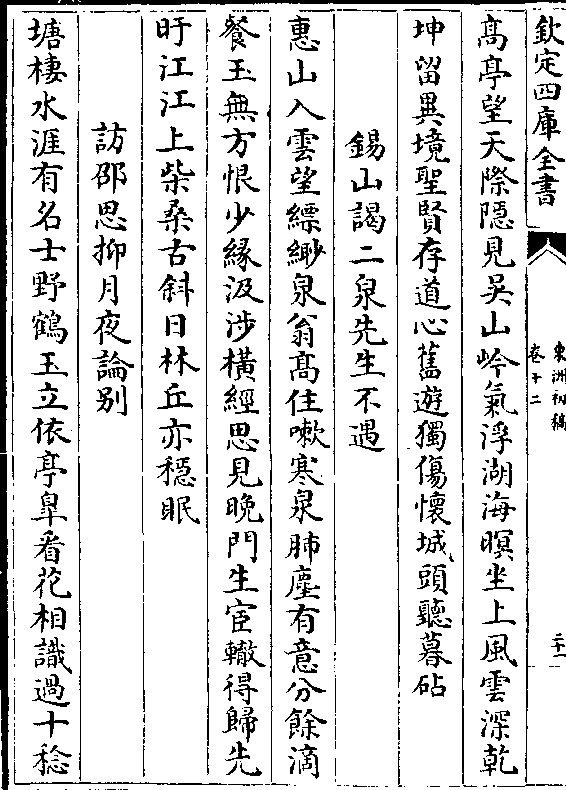 欽定四庫全書
東洲初稿
卷十二
二十一
高亭望天際隱見吳山岑氣浮湖海暝坐上風雲深乾
坤留異境聖賢存道心舊遊獨傷懷城頭聽暮砧
錫山謁二泉先生不遇
惠山入雲望縹緲泉翁髙住嗽寒泉肺塵有意分餘滴
餐玉無方恨少緣汲涉橫經思見晚門生宦轍得歸先
盱江江上柴桑古斜日林丘亦穩眠
訪邵思抑月夜論别
塘棲水涯有名士野鶴玉立依亭臯看花相識過十稔